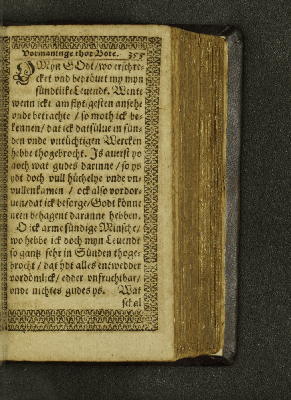 Vormaninge thor Bote. 355
O Myn GOdt/wo erschre-
cket vnd bedröuet my myn
sündtlike Leuendt. Wente
wenn ickt am flytigesten ansehe
vnde betrachte / so moth ick be-
kennen/ dat ick datsülue in sün-
den vnde vntüchtigen Wercken
hebbe thogebrocht. Js auerst yo
noch wat gudes darinne/so ys
ydt doch vull hüchelye vnde vn
vullenkamen / ock also vordor-
uen/dat ick besorge/Godt könne
neen behagent daranne hebben.
O ick arme sündige Minsche/
wo hebbe ick doch myn Leuendt
so gantz sehr in Sünden thoge-
brocht / dat ydt alles entwedder
vordömlick/ edder vnfruchtbar/
vnde nichtes gudes ys. Wat
schal